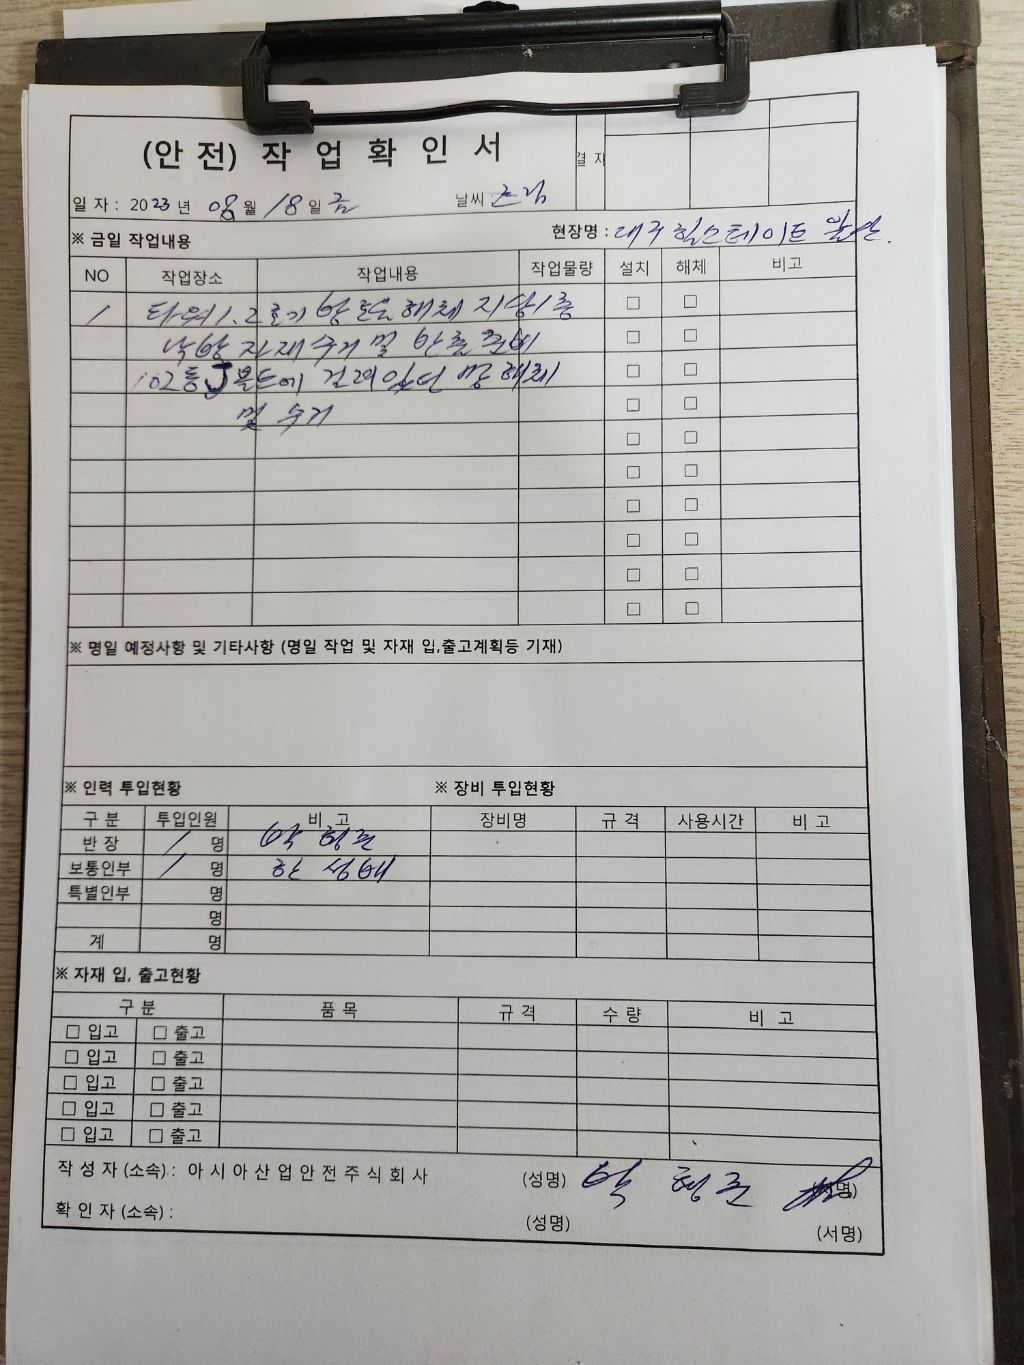 (안 전) 작 업 확 인 서
결 자
일 자 : 2023 년 08 월 18 일 금 날씨 : 흐림
※ 금일 작업내용 현장명 : 대구 힐스테이트
NO 작업장소 작업내용 작업물량 설치 해체 비고
1 타워 1.2호기 방호 해체 지상1층
낙방 자재 수거 및 반출 준비
102동 J볼트에 걸려있던 망 해체
및 수거
※ 명일 예정사항 및 기타사항 (명일 작업 및 자재 입,출고계획등 기재)
※ 인력 투입현황 ※ 장비 투입현황
구 분 투입인원 비 고 장비명 규 격 사용시간 비 고
반 장 1 명 박 형준
보통인부 1 명 한 성배
특별인부 명
명
계 명
※ 자재 입, 출고현황
구 분 품 목 규 격 수 량 비 고
□ 입고 □ 출고
□ 입고 □ 출고
□ 입고 □ 출고
□ 입고 □ 출고
□ 입고 □ 출고
작 성 자 (소속) : 아 시 아 산 업 안 전 주 식 회 사 (성명) 박 형 준 (서명)
확 인 자 (소속) : (성명) (서명)